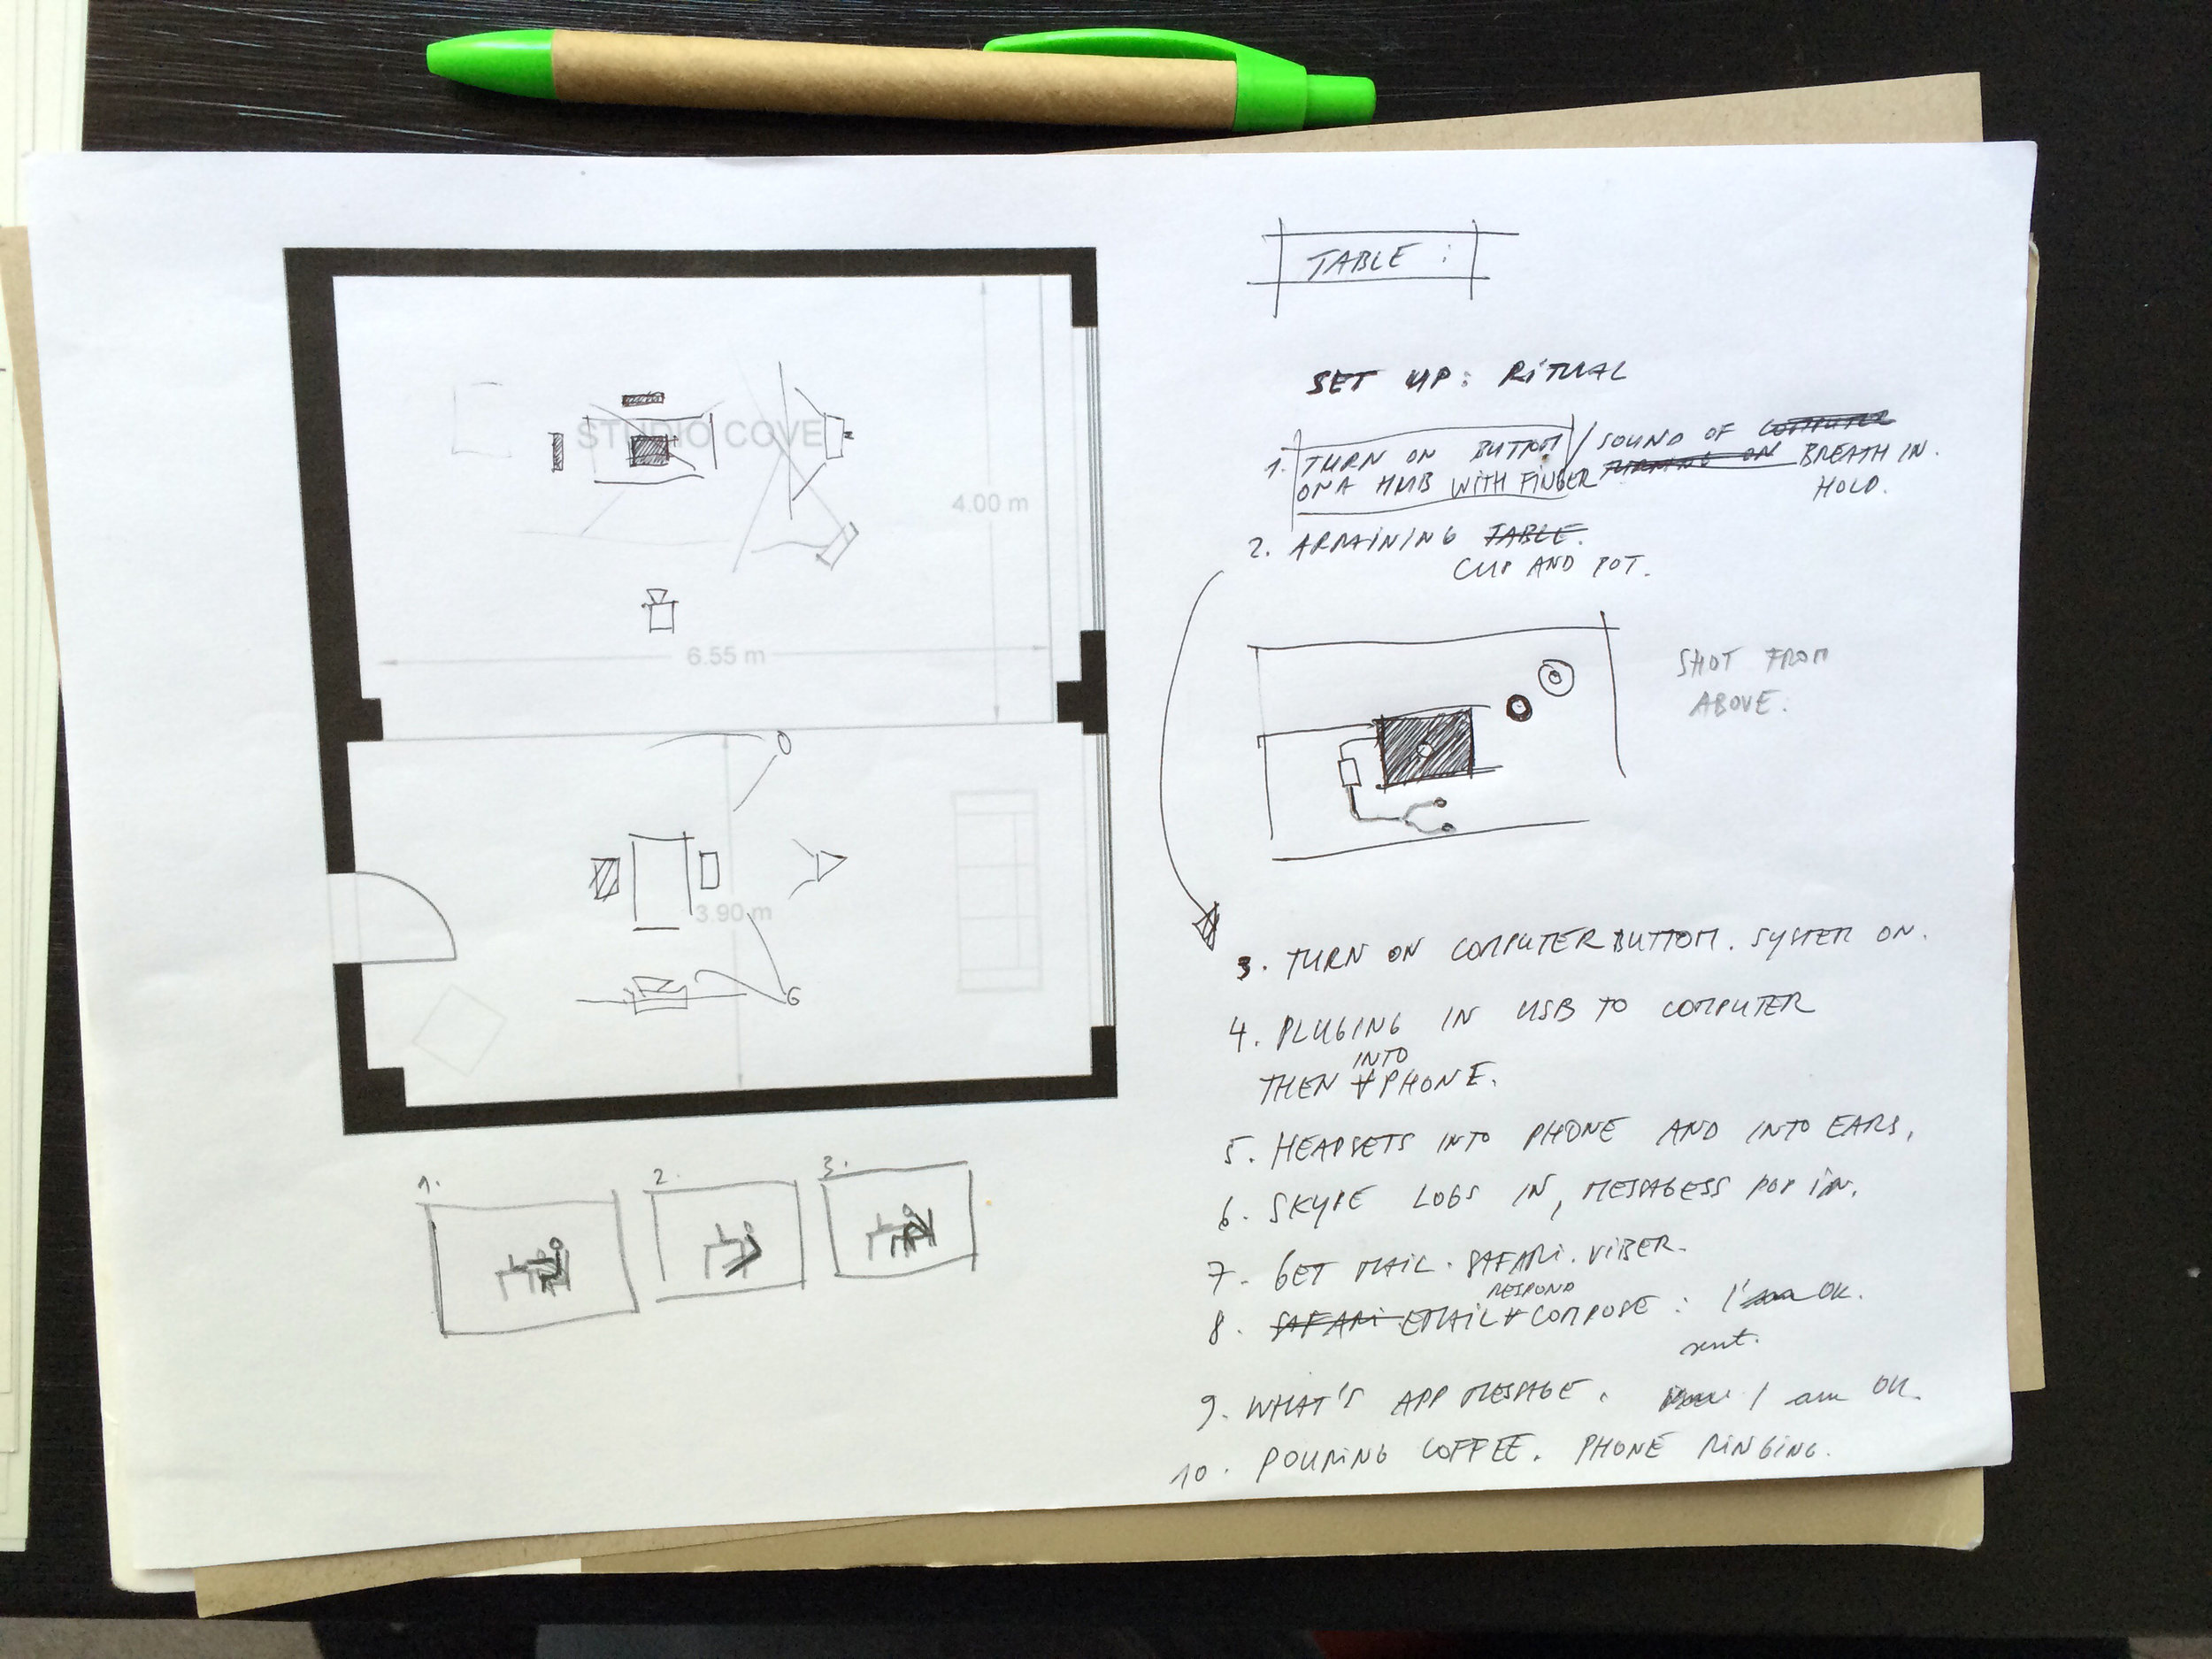 STUDIO COVE
4.00 m
6.55 m
3.90 m
1.
2.
3.
TABLE :
SET UP: RITUAL
1. TURN ON BUTTOM / SOUND OF COMPUTER
ON A HUB WITH FINGER TURNING ON BREATH IN.
HOLD.
2. ARRAINING TABLE.
CUP AND POT.
SHOT FROM
ABOVE.
3. TURN ON COMPUTER BUTTOM. SYSTEM ON.
4. PLUGING IN USB TO COMPUTER
INTO
THEN PHONE.
5. HEADSETS INTO PHONE AND INTO EARS.
6. SKYPE LOGS IN, MESSAGESS POP IN.
7. GET MAIL. SAFARI. VIBER.
RESPOND
8. SAFARI EMAIL COMPOSE : I'am OK.
sent.
9. WHAT'S APP MESSAGE. I am OK.
10. POURING COFFEE. PHONE RINGING.